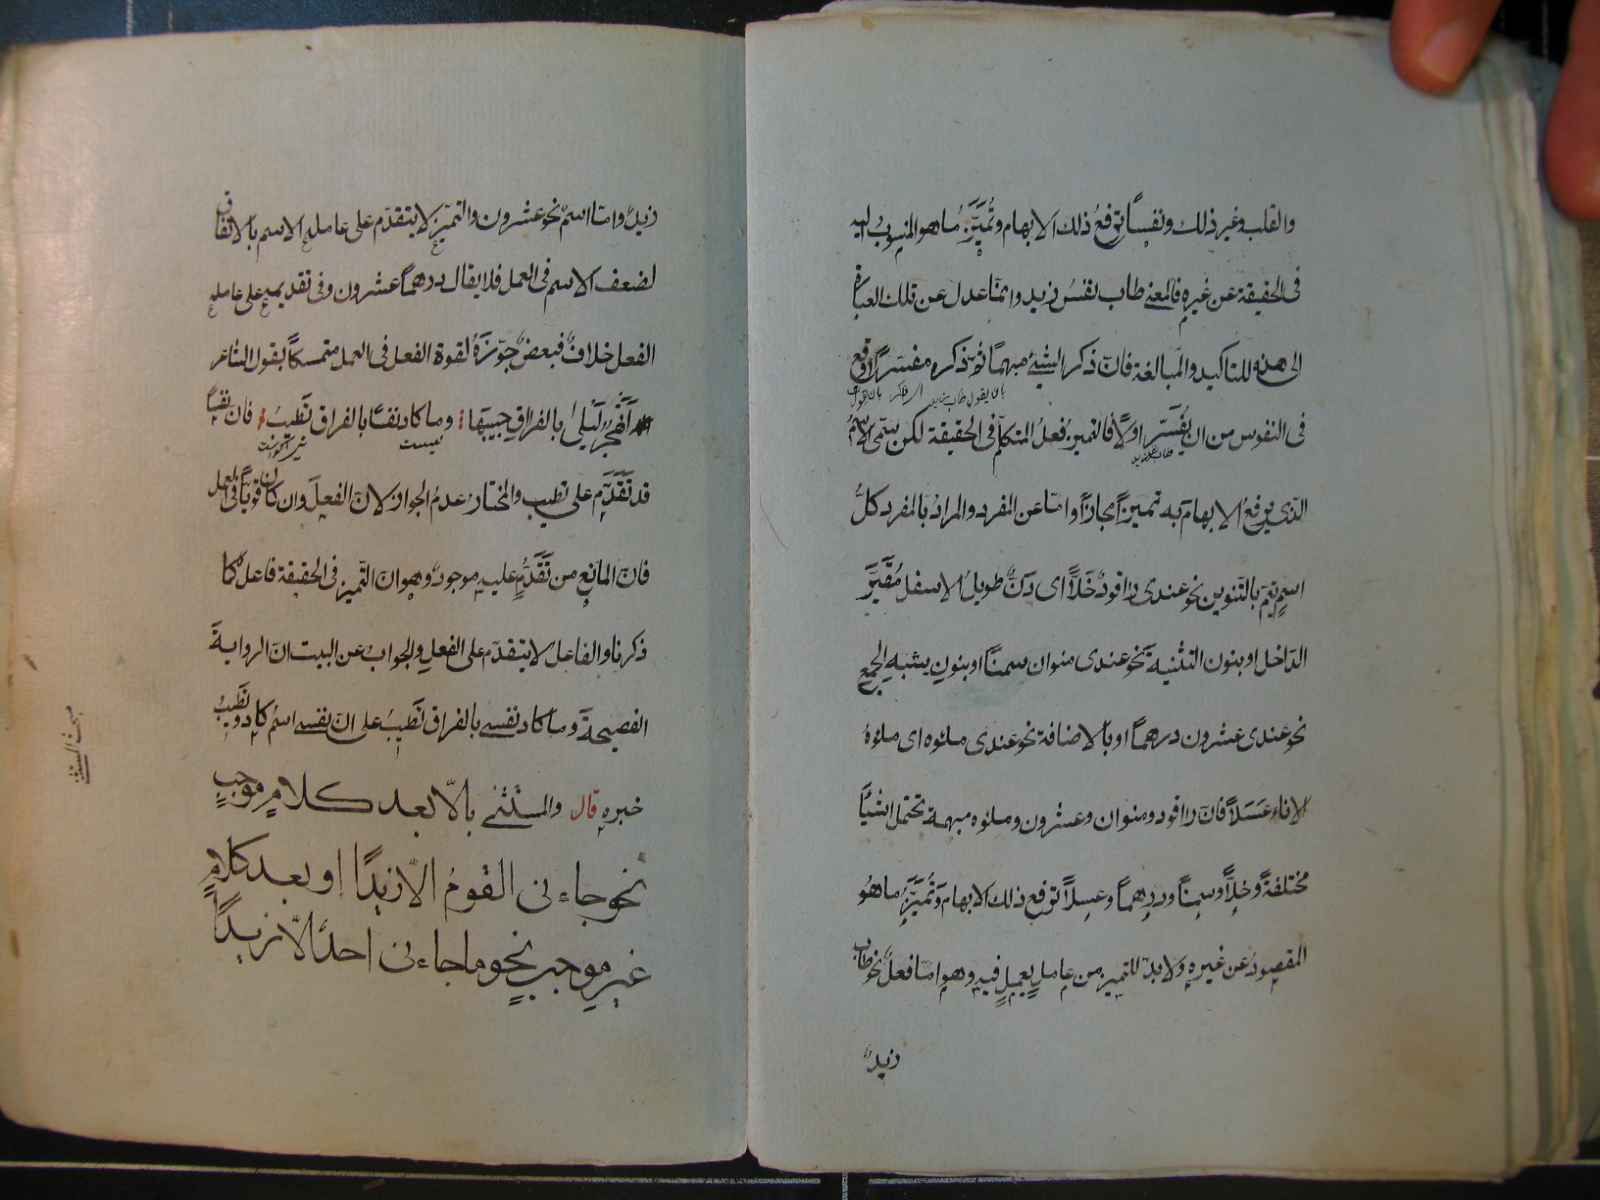 والقلب وغير ذلك ونفسًا ترفعُ ذلك الابهام وتُمَيِّزَ ما هو المنسوبُ اليه
فى الحقيقة عن غيرهِ فالمعنى طاب نفسُ زيد وانما عدل عن تلك العبارة
الى هذه للتأكيد والمبالغة فانّ ذكر الشئ مبهمًا ثم ذكره مفسّرا اوقع
فى النفوس من ان يُفَسَّر اولًا فالتميزُ فعلُ المتكلّم فى الحقيقة لكن يسمّى الاسمُ
الذى يرفعُ الابهام به تميزًا مجازًا وامّا عن المفرد والمرادُ بالمفرد كلُّ
اسمٍ يتم بالتنوين نحو عندى راقودٌ خَلًّا اى دَنٌّ طويلُ الاسفل مُقَيَّرَ
الداخل او بنون التثنية نحو عندى منوان سمنًا او بنونٍ يشبه الجمع
نحو عندى عشرون درهمًا او بالاضافة نحو عندى ملئوه اى ملؤهُ
الاناء عَسَلًا فانّ راقود ومنوان وعشرون وملئوه مبهمة تحتمل اشياءً
مختلفةً وخلًّا وسمنًا ودرهمًا وعسلًا ترفع ذلك الابهام وتُمَيِّزَ ما هو
المقصودُ عن غيره ولابدّ للتميز من عاملٍ يعمل فيه وهو امّا فعلٌ نحو طاب
زيدٌ
زيدٌ وامّا اسمٌ نحو عشرون والتميزُ لايتقدّم على عامله الاسم بالاتفاق
لضعف الاسم فى العمل فلا يقال درهمًا عشرون وفى تقديمه على عامله
الفعل خلافٌ فبعضٌ جوّزهُ لقوة الفعل فى العمل متمسكًا بقول الشاعر
أتهجرُ ليلى بالفراقِ حبيبَها وما كاد نفسًا بالفراق تَطيبُ فان نفسًا
قد تَقَدَّم على تطيب والمختارُ عدمُ الجواز لانّ الفعلَ وان كان قويًّا فى العمل
فانّ المانع من تَقَدُّمِ عليه موجودٌ وهو انّ التميز فى الحقيقة فاعلٌ كما
ذكرنا والفاعل لايتقدّم على الفعل والجوابُ عن البيت انّ الرواية
الفصيحة وما كاد نفسى بالفراق تَطيبُ على انّ نفسى اسمُ كاد وتطيبُ
خبره قال والمستثنى بالّا بعد كلامٍ موجبٍ
نحو جاءنى القومُ الّا زيدًا او بعد كلامٍ
غيرِ موجبٍ نحو ما جاءنى احدٌ الّا زيدًا